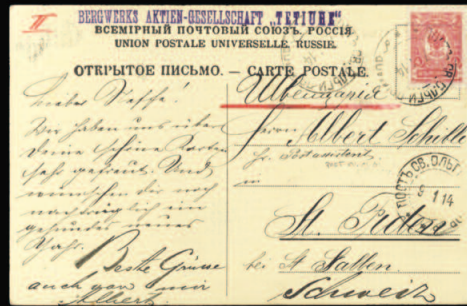 BERGWERKS AKTIEN-GESELLSCHAFT „TETIUHE"
ВСЕМІРНЫЙ ПОЧТОВЫЙ СОЮЗЪ. РОССІЯ
UNION POSTALE UNIVERSELLE. RUSSIE.
ОТКРЫТОЕ ПИСЬМО. — CARTE POSTALE.
Lieber Neffe!
Wir haben uns über
Deine schöne Karten
sehr gefreut. Und
wünschen dir noch
nachträglich ein
gesundes neues
Jahr.
Beste Grüsse
auch von mir
Albert
Швейцарія
Herrn Albert
in
St.
bei St Gallen.
Schweiz
ПОСТЪ СВ. ОЛЬГ
1 14